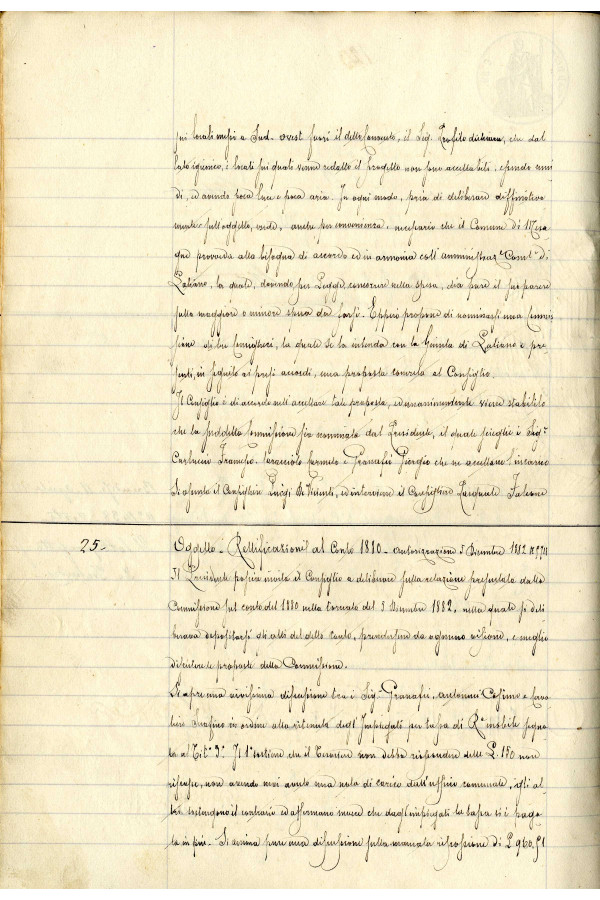 sui locali messi a Sud-ovest fuori il detto Convento, il Sig. Profilo dichiara, che dal
lato igienico, i locali sui quali venne redatto il Progetto non sono accettabili, essendo umi
di, ed avendo poca luce e poca aria. In ogni modo, pria di deliberare diffinitiva
mente sull'oggetto, crede, anche per convenienza e necessario che il Comune di Mesa
gne provveda alla bisogna di accordo ed in armonia coll'amministraz.e Com.le di
Latiano, la quale, dovendo per Legge, concorrere nella spesa, dia pure il suo parere
sulla maggiore o minore spesa da farsi. Epperò propone di nominarsi una Commis
sione di tre Consiglieri, la quale se la intenda con la Giunta di Latiano e pre
senti, in seguito ai presi accordi, una proposta concreta al Consiglio.
Il Consiglio è di accordo nell'accettare tale proposta, ed unanimemente viene stabilito
che la suddetta Commissione sia nominata dal Presidente, il quale sceglie i Sig.i
Carluccio Francesco, Caracciolo Carmelo e Granafei Giorgio che ne accettano l'incarico
Si assenta il Consigliere Luigi De Vincenti, ed interviene il Consigliere Pasquale Falcone
25- Oggetto - Rettificazioni al Conto 1880 - autorizzazione 5 Dicembre 1882 N. 9711
Il Presidente poscia invita il Consiglio a deliberare sulla relazione presentata dalla
Commissione sul conto del 1880 nella tornata del 3 Novembre 1882, nella quale si deli
berava depositarsi gli atti del detto Conto, prendersene da ognuno visione, e meglio
discutere le proposte della Commissione.
Si apre una vivissima discussione tra i Sig.i Granafei, Antonucci Cosimo e Cava
liere Serafino in ordine alla ritenuta degl'Impiegati per tassa di R.a mobile segna
ta al Tit.o 3.o Il 1.o sostiene che il Tesoriere non debba rispondere delle L. 150 non
riscosse, non avendo mai avuto una nota di carico dall'ufficio comunale, gli al
tri sostengono il contrario ed affermano invece che dagl'impiegati la tassa si è paga
ta in più. Si anima pure una discussione sulla mancata riscossione di L. 960,51